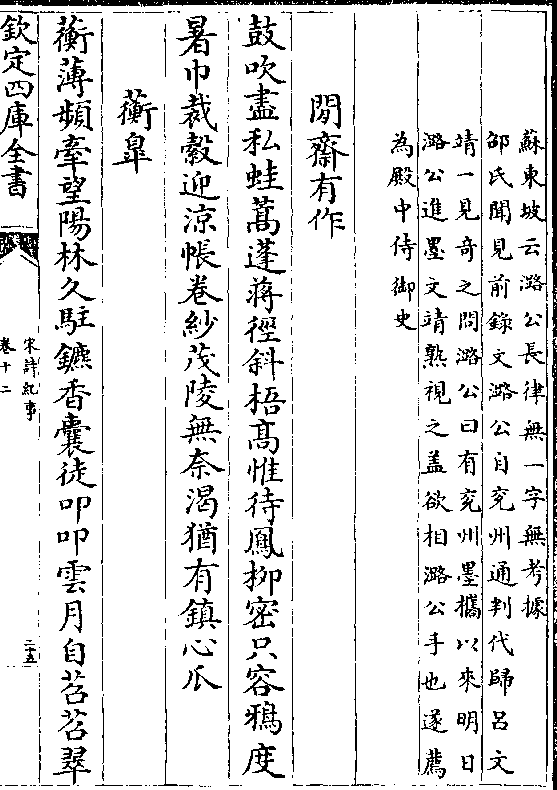 蘇東坡云潞公長律無一字無考據
邵氏聞見前錄文潞公自兖州通判代歸呂文
靖一見奇之問潞公曰有兖州墨攜以來明日
潞公進墨文靖熟視之盖欲相潞公手也遂薦
為殿中侍御史
閒齋有作
鼓吹盡私蛙蒿蓬蔣徑斜梧髙惟待鳳栁密只容鴉度
暑巾裁縠迎涼帳卷紗茂陵無奈渴猶有鎮心瓜
蘅臯
蘅薄頻牽望陽林久駐鑣香囊徒叩叩雲月自苕苕翠
欽定四庫全書
宋詩紀事
卷十二
二十五